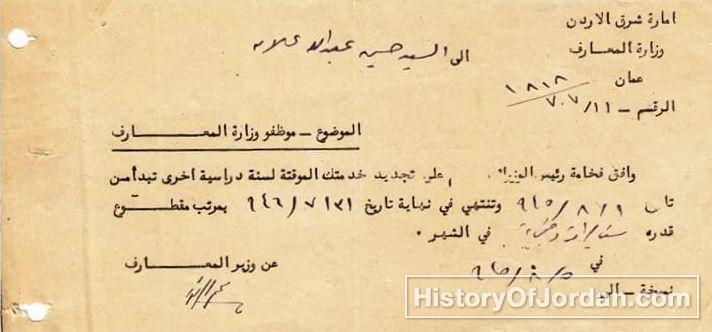 امارة شرق الاردن
وزارة المعارف
عمان
الرقم – ٧٠٧/١١
١٨١٨
الى السيد حسين عبدالله علامه
الموضوع – موظفو وزارة المعارف
وافق فخامة رئيس الوزراء على تجديد خدمتك الموقتة لسنة دراسية اخرى تبدأ من
٩٤٥/٨/١ وتنتهي في نهاية تاريخ ٩٤٦/٧/٣١ بمرتب مقطوع
قدره في الشهر .
في ٩٤٥/٨/٥
عن وزير المعارف
نسخة – الى
HistoryOfJordan.com